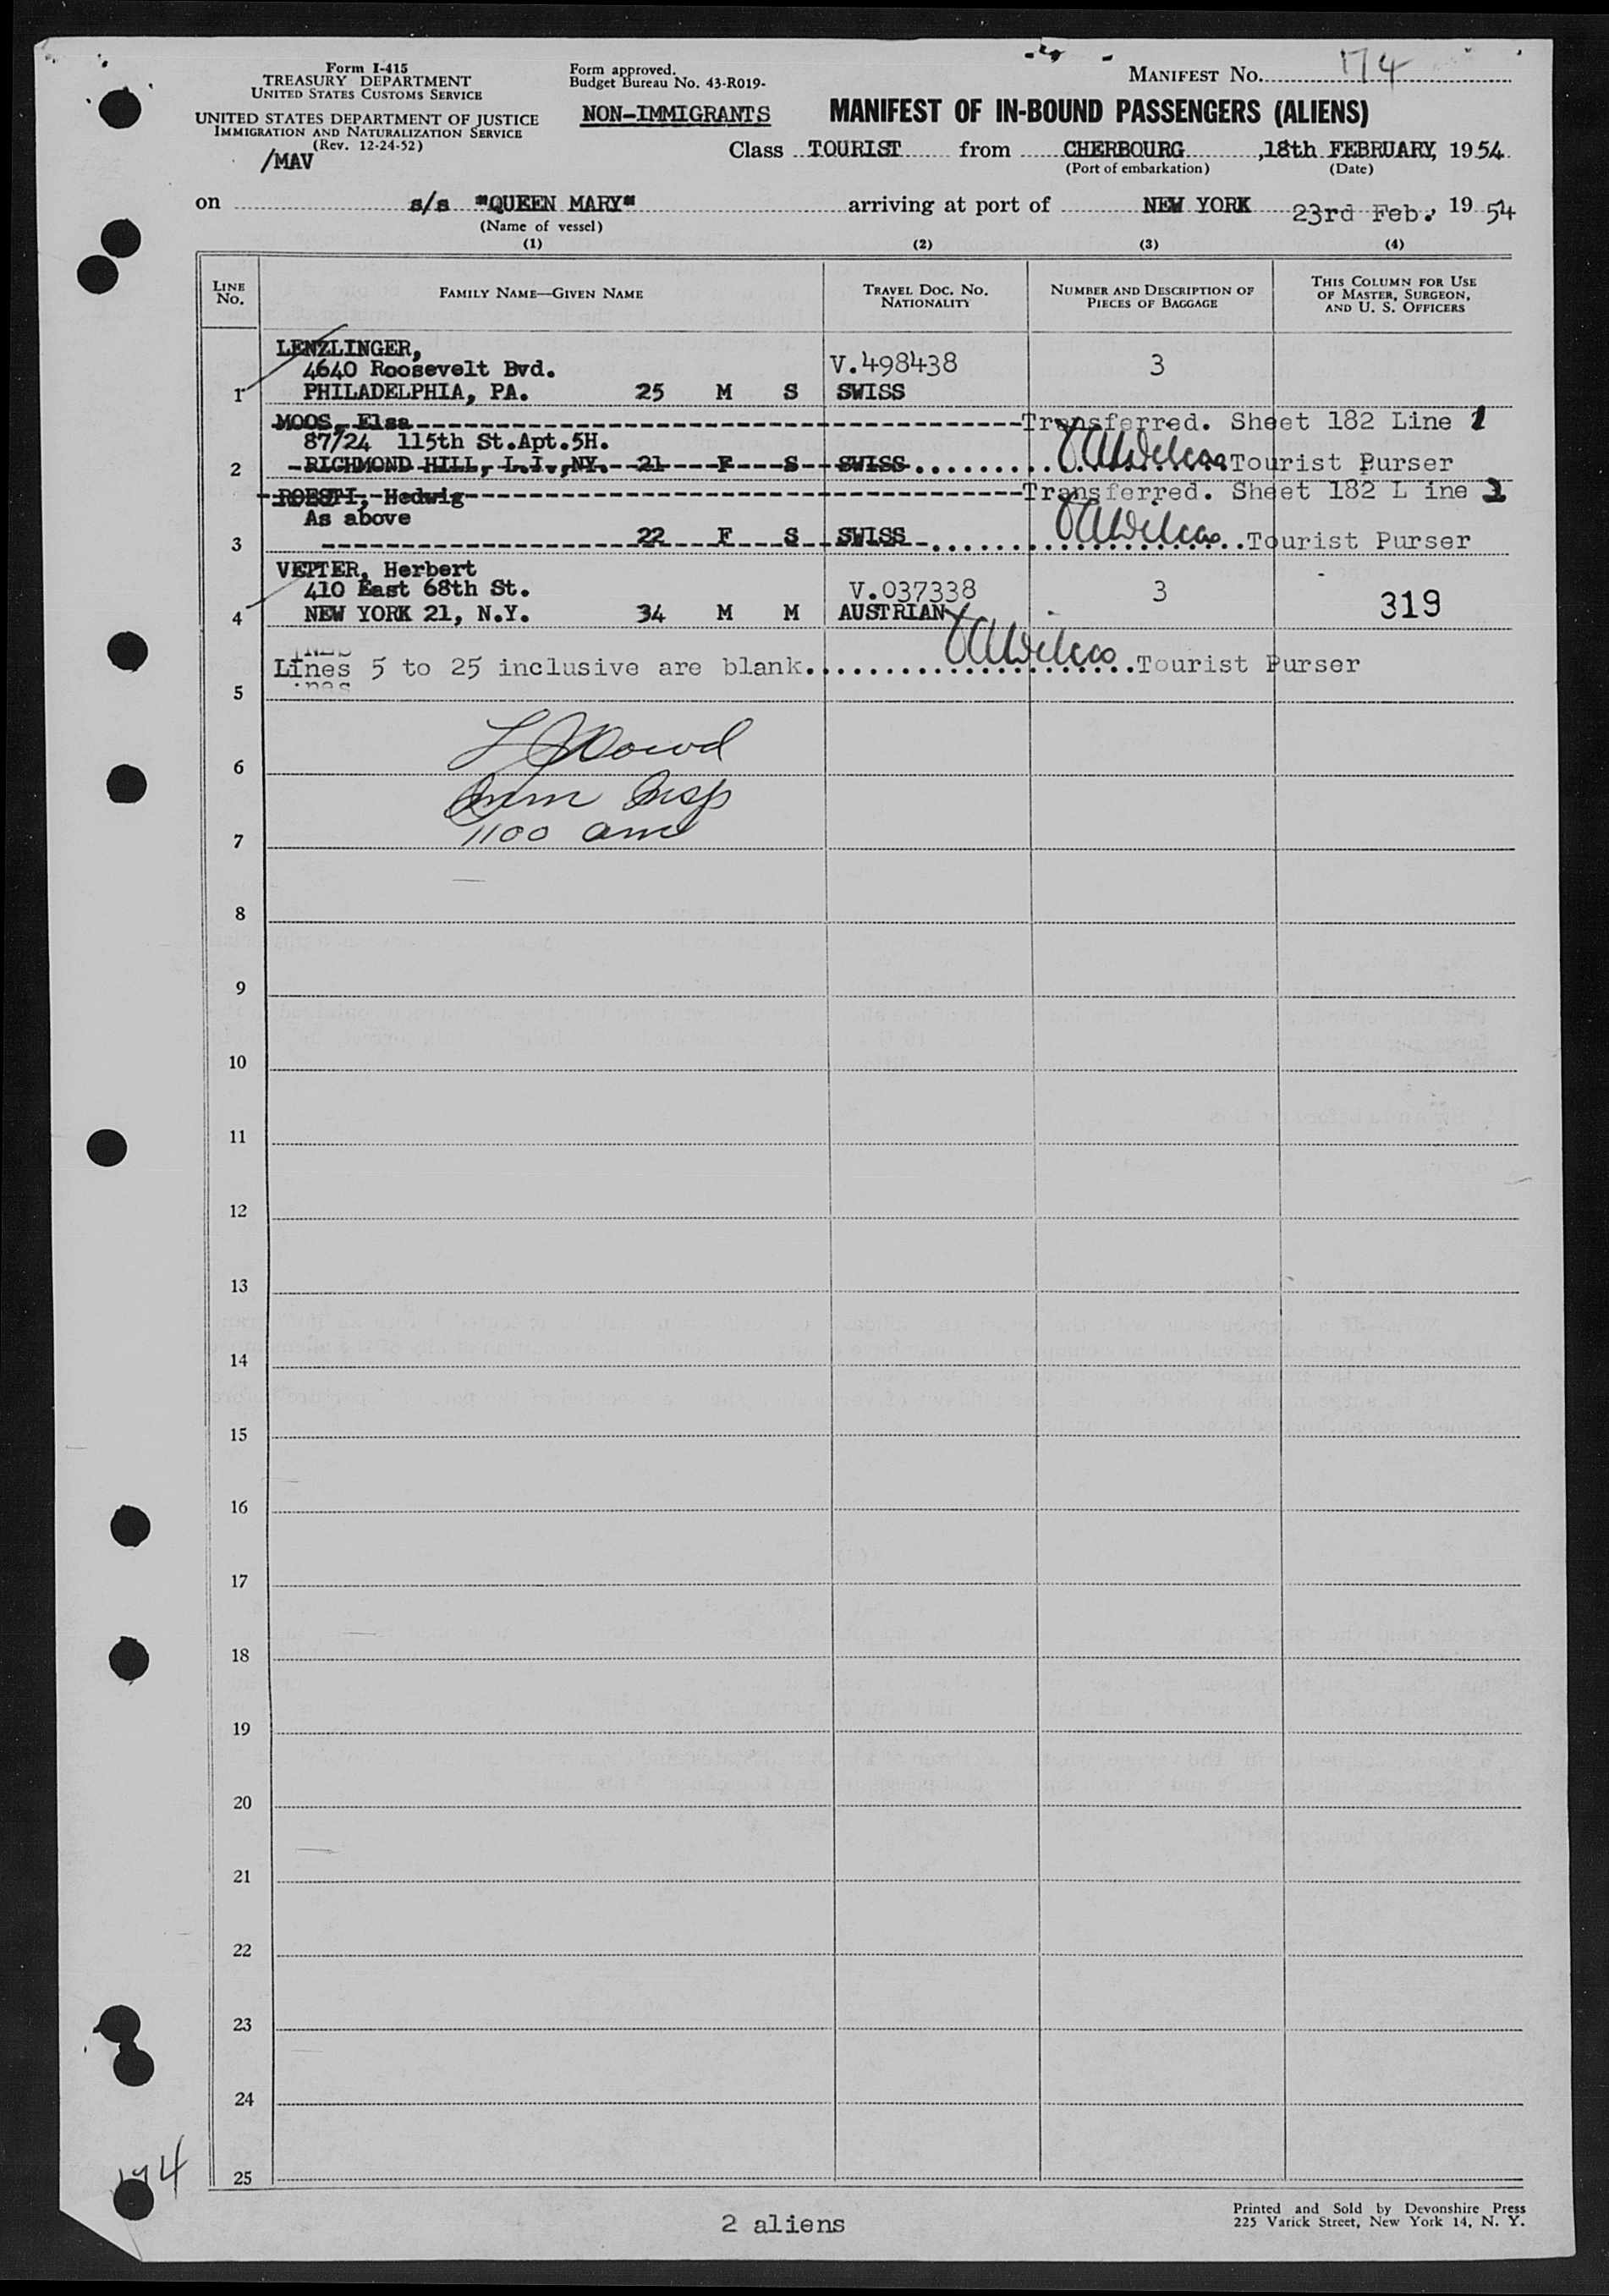 Form I-415
TREASURY DEPARTMENT
UNITED STATES CUSTOMS SERVICE
UNITED STATES DEPARTMENT OF JUSTICE
IMMIGRATION AND NATURALIZATION SERVICE
(Rev. 12-24-52)
/MAV
Form approved.
Budget Bureau No. 43-R019-
NON-IMMIGRANTS
MANIFEST No. 174
MANIFEST OF IN-BOUND PASSENGERS (ALIENS)
Class TOURIST from CHERBOURG, 18th FEBRUARY, 1954
(Port of embarkation) (Date)
on s/s "QUEEN MARY" arriving at port of NEW YORK 23rd Feb., 1954
(Name of vessel)
(1) (2) (3) (4)
LINE No. FAMILY NAME—GIVEN NAME TRAVEL DOC. NO. NATIONALITY NUMBER AND DESCRIPTION OF PIECES OF BAGGAGE THIS COLUMN FOR USE OF MASTER, SURGEON, AND U. S. OFFICERS
LENZLINGER,
4640 Roosevelt Bvd. V.498438 3
1 PHILADELPHIA, PA. 25 M S SWISS
MOOS, Elsa Transferred. Sheet 182 Line 1
87/24 115th St.Apt.5H.
2 RICHMOND HILL, L.I.,NY. 21 F S SWISS Tourist Purser
ROESTI, Hedwig Transferred. Sheet 182 L ine 2
As above
3 22 F S SWISS Tourist Purser
VETTER, Herbert
410 East 68th St. V.037338 3 319
4 NEW YORK 21, N.Y. 34 M M AUSTRIAN
Lines 5 to 25 inclusive are blank. Tourist Purser
5
6
Imm Insp
1100 am
7
8
9
10
11
12
13
14
15
16
17
18
19
20
21
22
23
24
25
174
2 aliens
Printed and Sold by Devonshire Press
225 Varick Street, New York 14, N. Y.